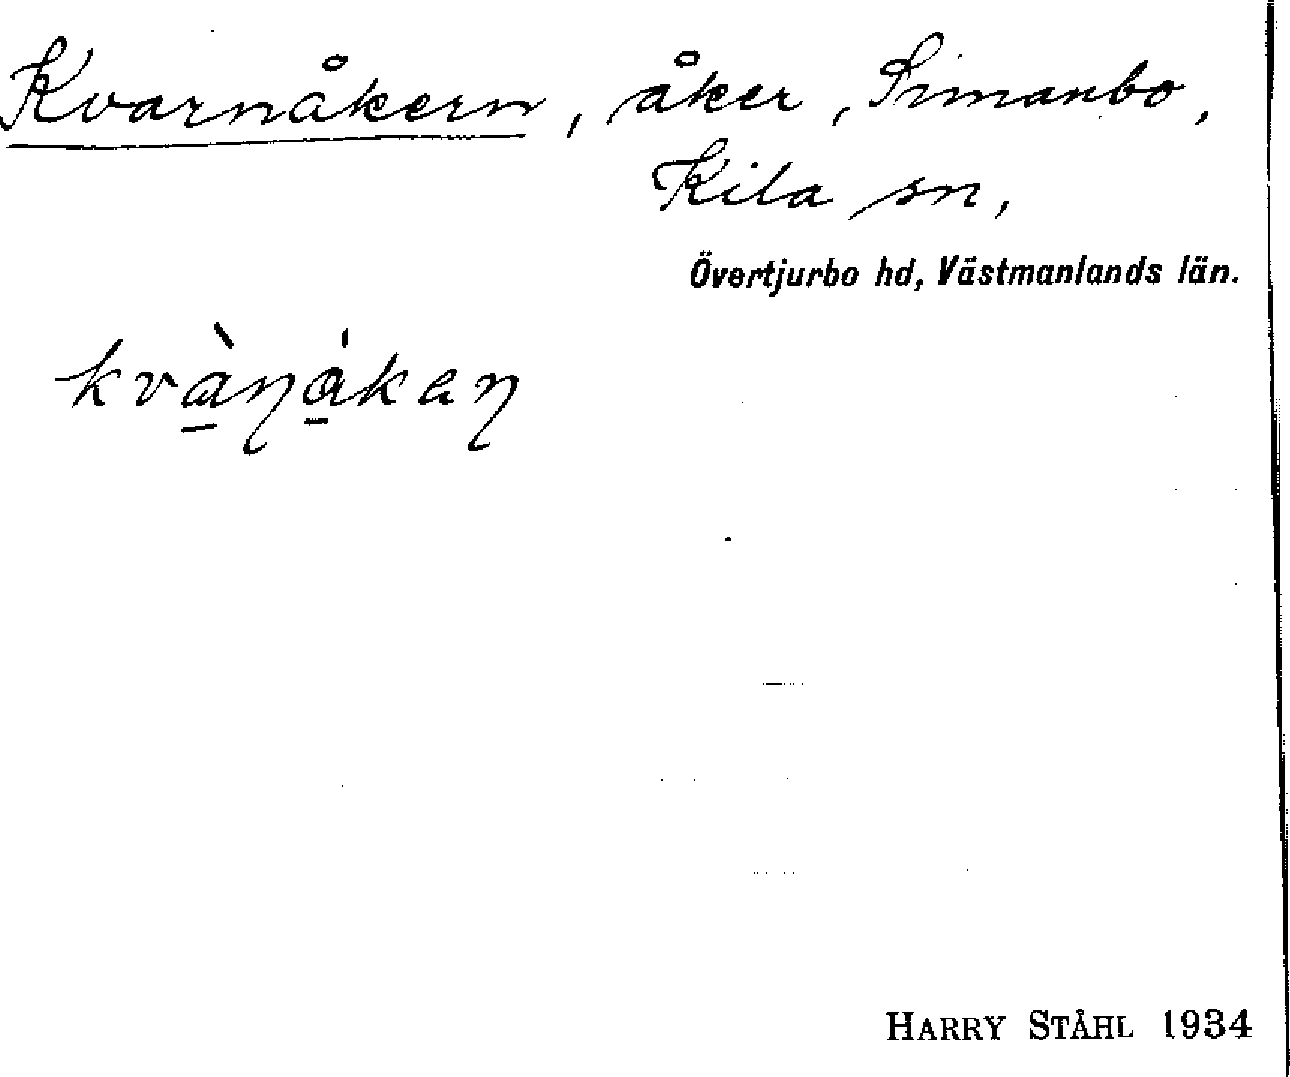 Kvarnåkern, åker, Simanbo,
Kila sn,
Övertjurbo hd, Västmanlands län.
HARRY STÅHL 1934